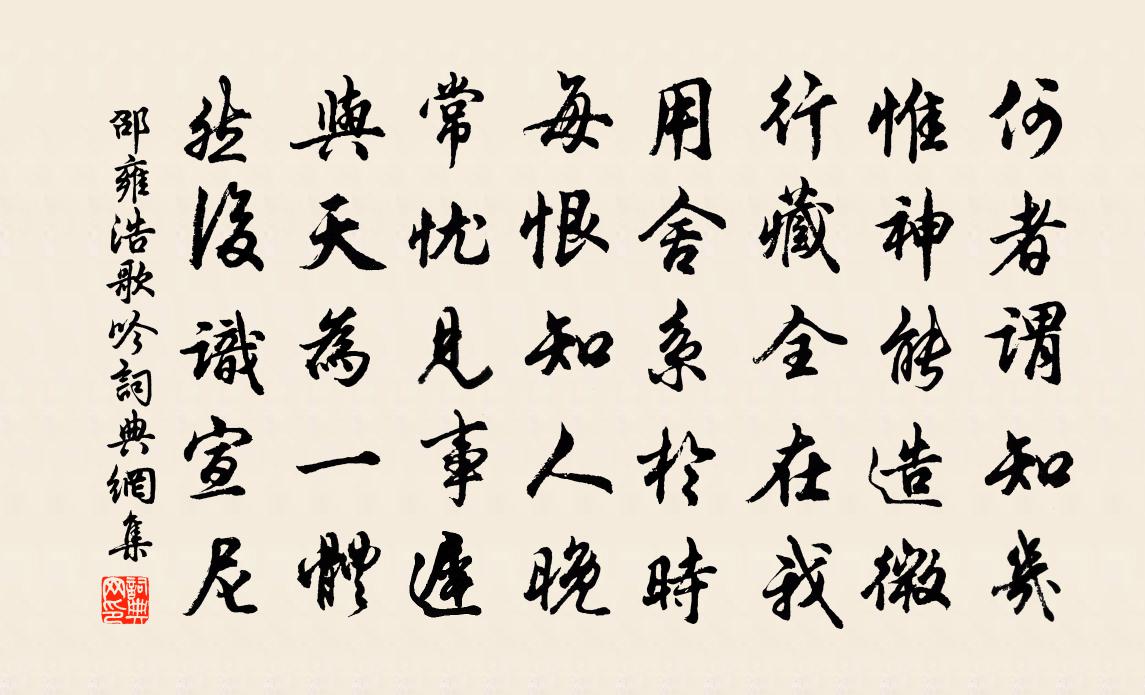 何者謂知幾
惟神能造微
行藏全在我
用舍系於時
每恨知人晚
常忧見事遲
與天為一體
然後識宣尼
邵雍浩歌吟詞典網集
詞典網印